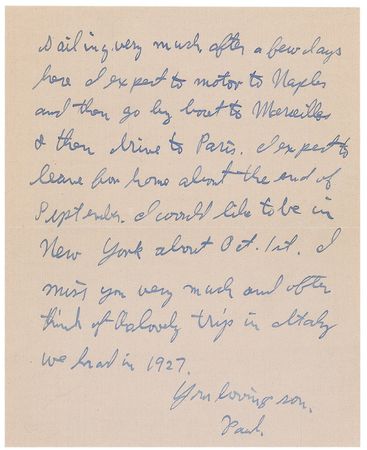 sailing very much after a few days
here I expect to motor to Naples
and then go by boat to Marseilles
& then drive to Paris. I expect to
leave for home about the end of
September. I would like to be in
New York about Oct. 1st. I
miss you very much and often
think of the lovely trip in Italy
we had in 1927.
Your loving son,
Paul.